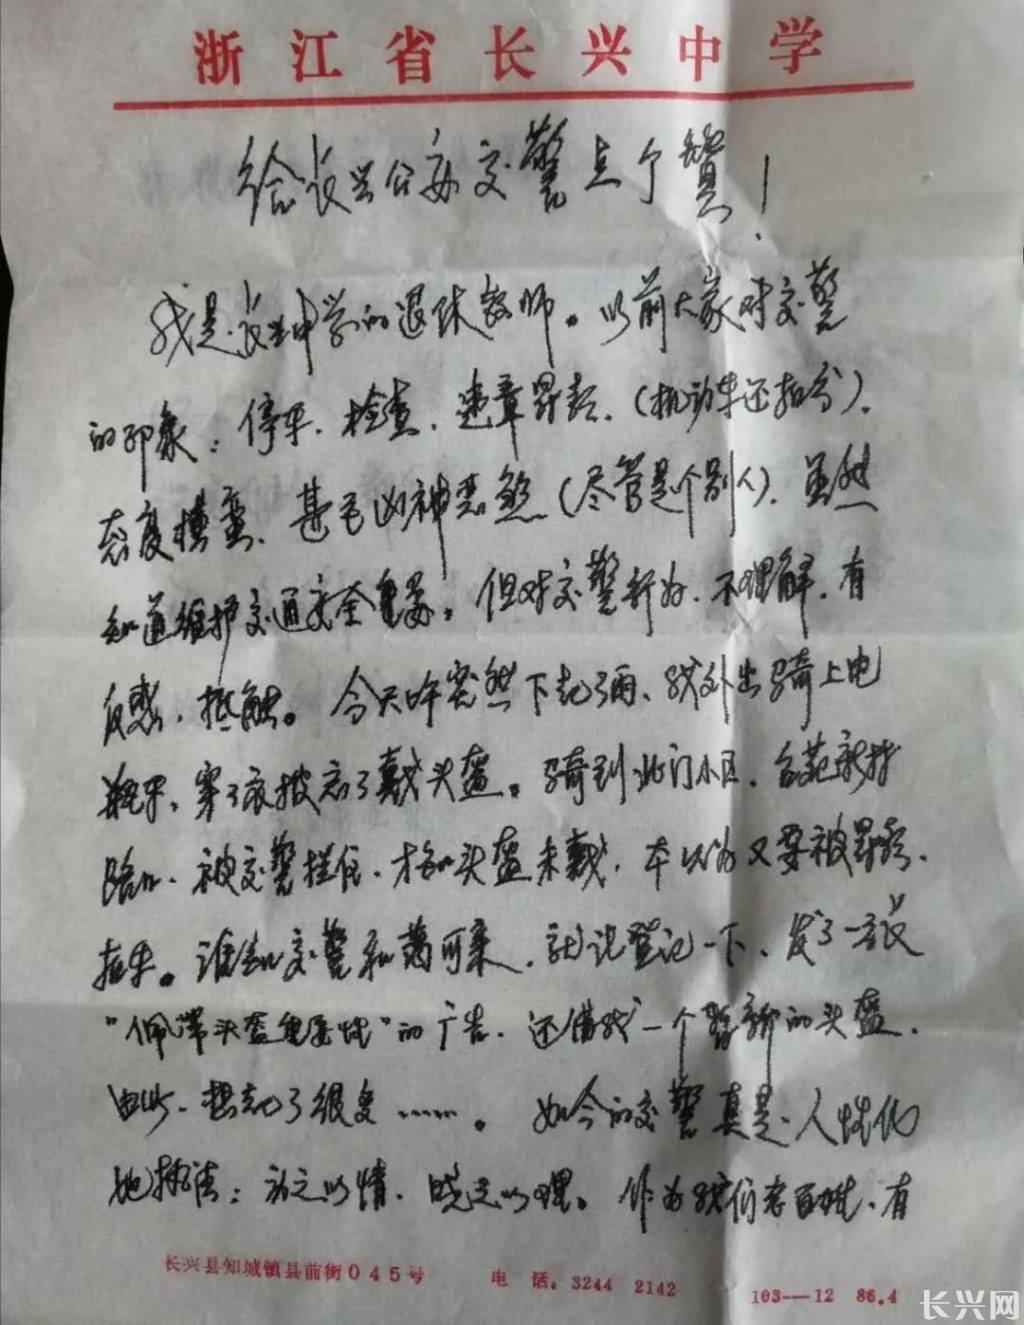 浙江省长兴中学
给长兴公安交警点个赞！
我是长兴中学的退休教师。以前大家对交警
的印象：停车、检查、违章罚款、（机动车还扣分）、
态度横蛮、甚至凶神恶煞（尽管是个别人）。虽然
知道维护交通安全重要。但对交警行为、不理解、有
反感、抵触。今天下午突然下起了雨、我外出骑上电
瓶车，穿了雨披忘了戴头盔。骑到北门小区、台苑新村
路口、被交警拦住、才知头盔未戴，本以为又要被罚款、
扣车。谁知交警和蔼可亲，就说登记一下、发了一张
“佩带头盔重要性”的广告、还借我一个暂新的头盔、
由此、想起了很多……。如今的交警真是人性化
地执法：动之以情、晓之以理。作为我们老百姓、有
长兴县知城镇县前街045号 电 话：3244 2142 103—12 86.4
长兴网